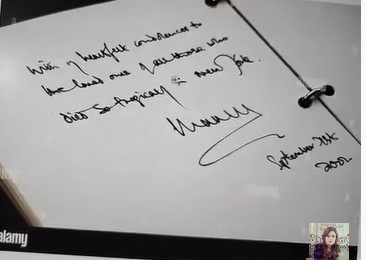 With my heartfelt condolences to
the loved ones of all those who
died so tragically in New York.
September 21st
2002
alamy